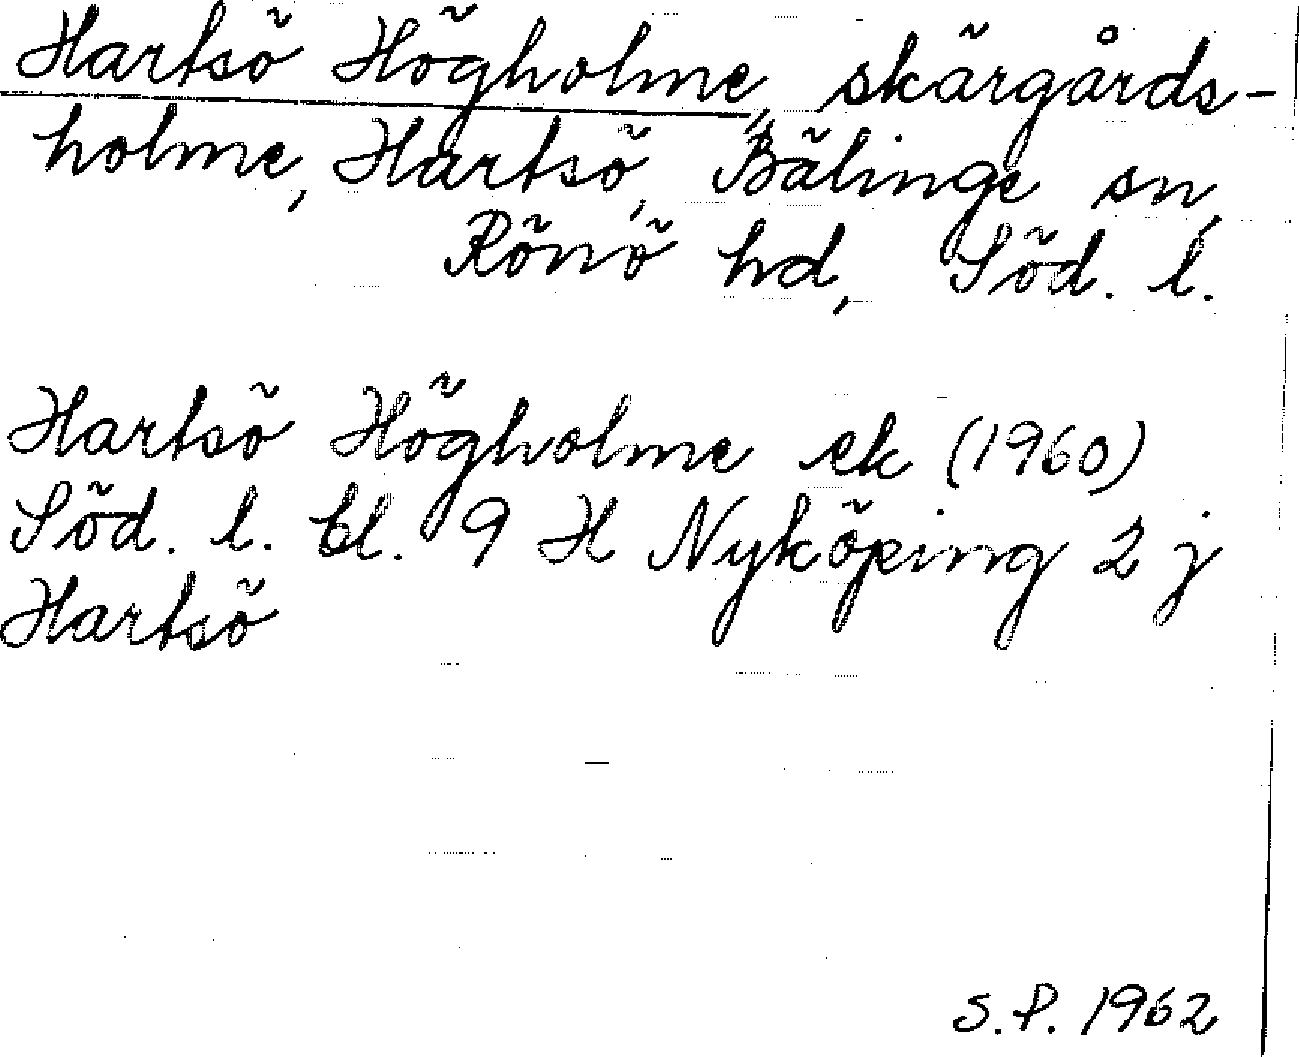 Hartsö Högholme, skärgårds-
holme, Hartsö, Bälinge sn,
Rönö hd, Söd. l.
Hartsö Högholme ek (1960)
Söd. l. bl. 9 H Nyköping 2 j
Hartsö
S.P. 1962